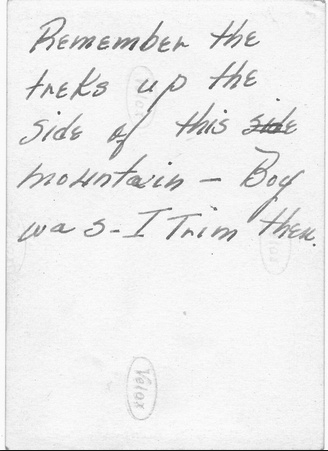 Remember the
treks up the
side of this side
mountain - Boy
was - I Trim then.
Velox
Velox
Velox